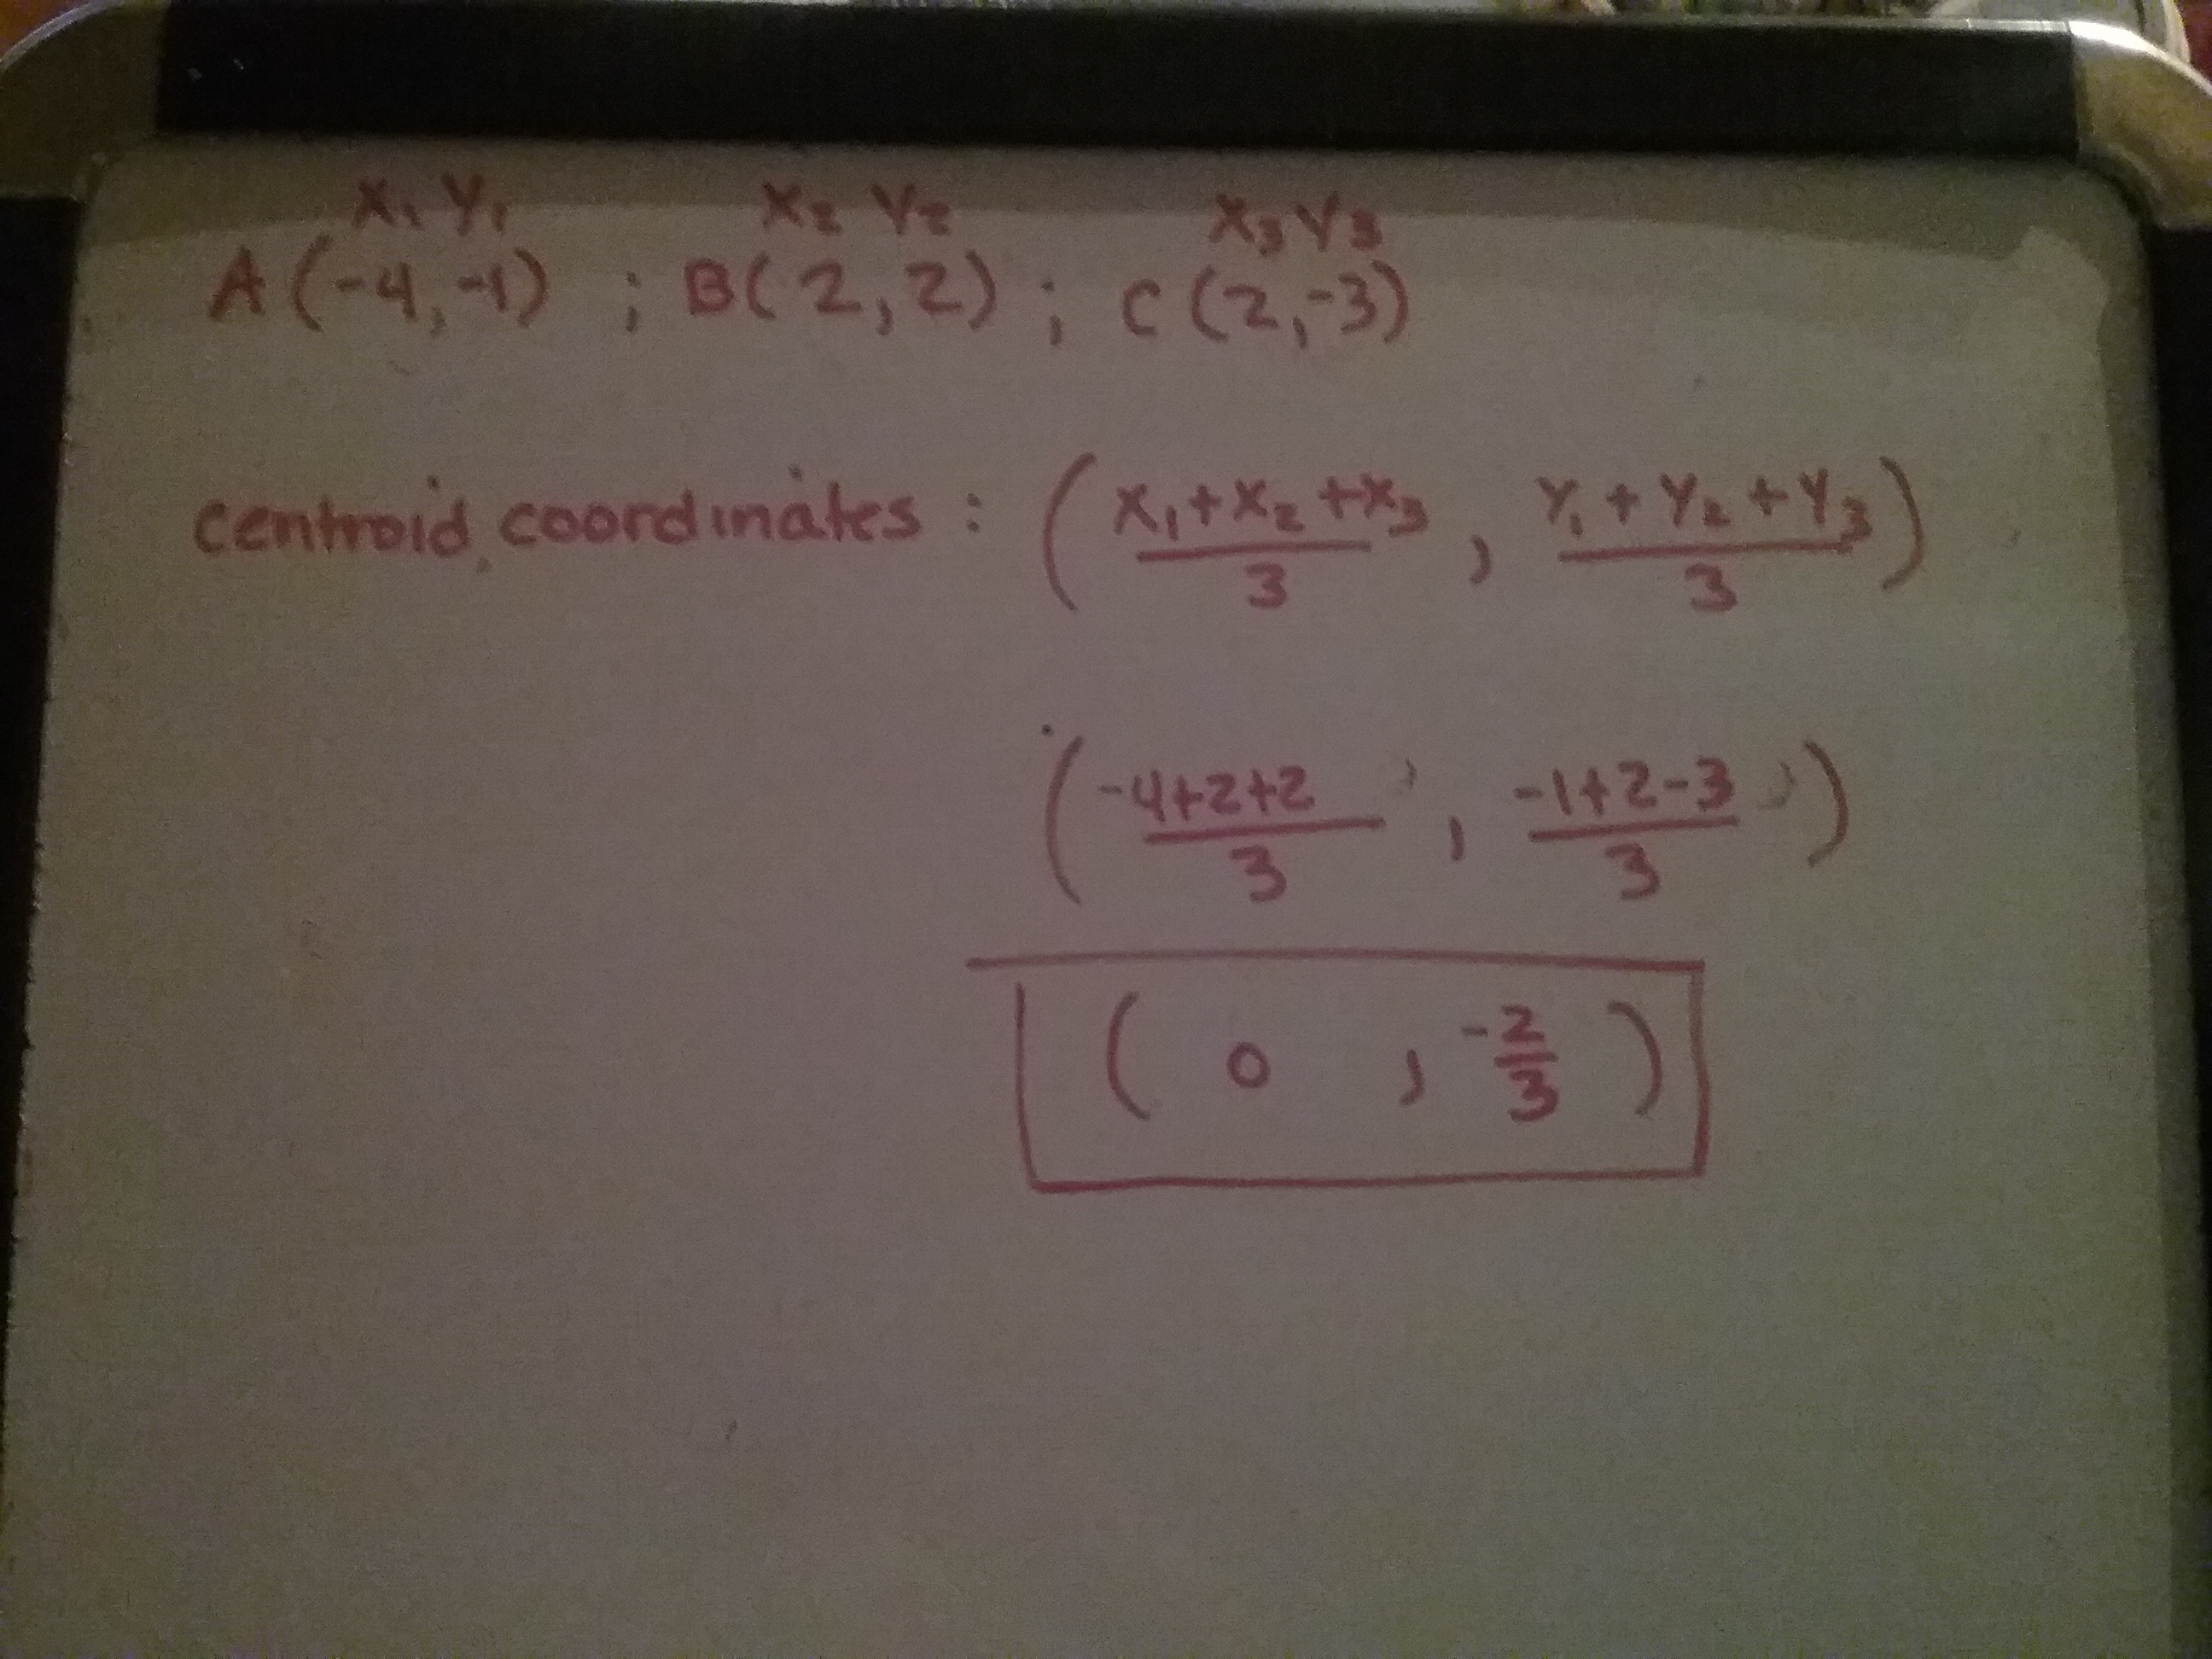 X₁ Y₁ X₂ Y₂ X₃ Y₃
A(-4,-1) ; B(2,2) ; C(2,-3)
centroid coordinates : (X₁+X₂+X₃/3 , Y₁+Y₂+Y₃/3)
(-4+2+2/3 , -1+2-3/3)
(0 , -2/3)